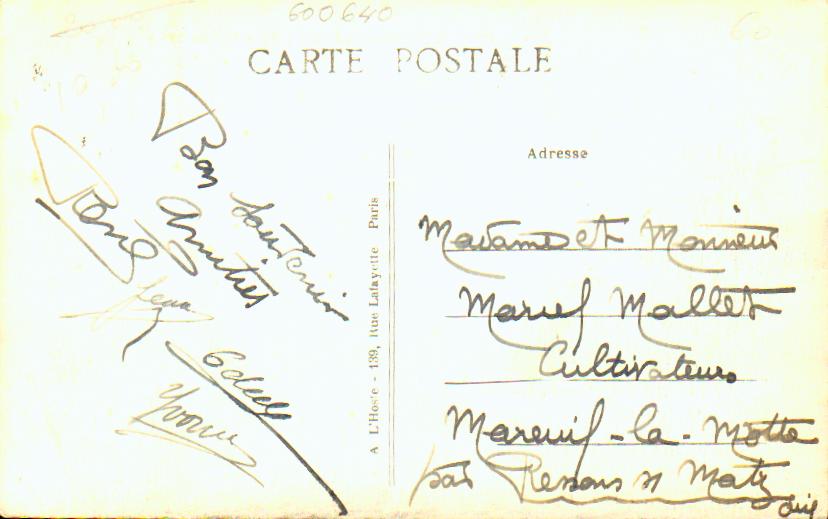 600640
60
CARTE POSTALE
Adresse
Bon Souvenir
Amitiés
René
Jean
Odette
Yvonne
A L'Hoste - 139, Rue Lafayette Paris
Madame et Monsieur
Marcel Mallet
Cultivateurs
Mareuil-la-Motte
par Ressons s/ Matz
Oise